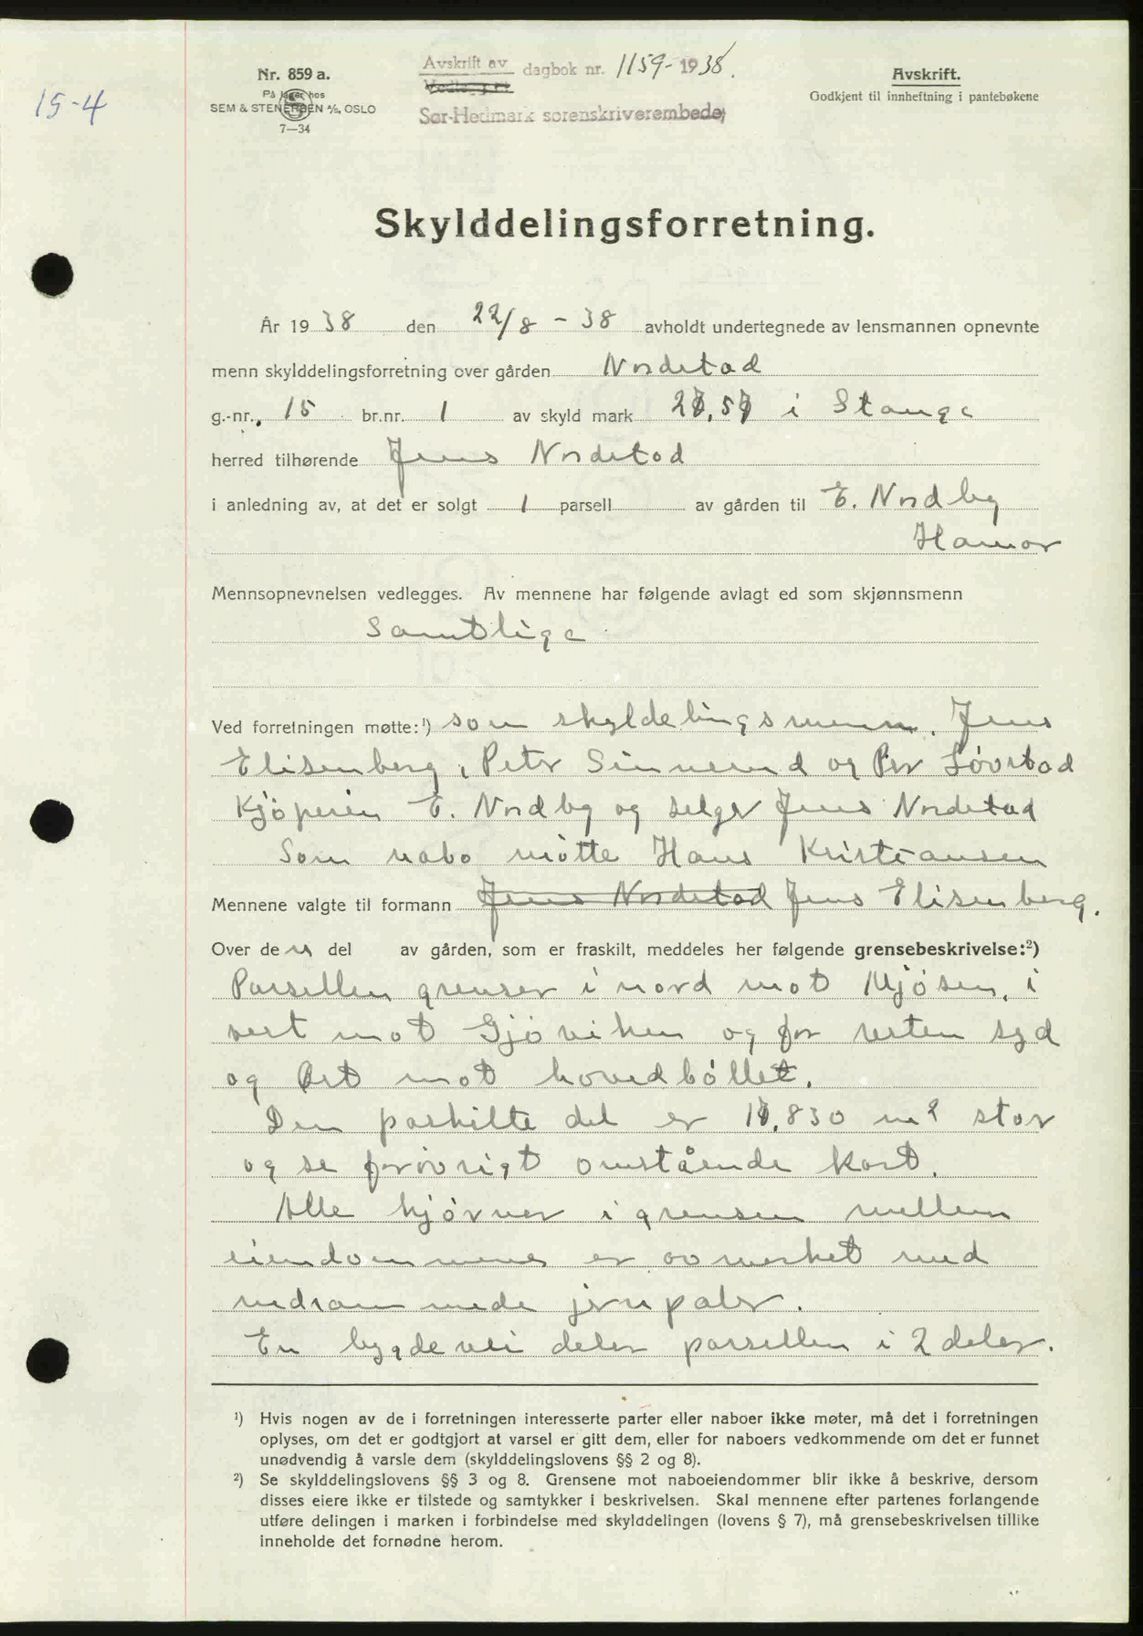 15-4
Nr. 859 a.
På lager hos
SEM & STENERSEN A/S, OSLO
7—34
Avskrift av dagbok nr. 1159-1938.
Vedlegg nr.
Sør-Hedmark sorenskriverembede
Avskrift.
Godkjent til innheftning i pantebøkene
Skylddelingsforretning.
År 1938 den 22/8 - 38 avholdt undertegnede av lensmannen opnevnte
menn skylddelingsforretning over gården Nordstad
g.-nr. 15 br.nr. 1 av skyld mark i Stange
herred tilhørende Jens Nordstad
i anledning av, at det er solgt 1 parsell av gården til E. Nordby
Hamar
Mennsopnevnelsen vedlegges. Av mennene har følgende avlagt ed som skjønnsmenn
Samtlige
Ved forretningen møtte:¹) som skyldelingsmenn. Jens
Elisenberg, Peter Sinnerud og Per Løvstad
Kjøperen E. Nordby og selger Jens Nordstad
Som nabo møtte Hans Kristiansen
Mennene valgte til formann Jens Nordstad Jens Elisenberg.
Over den del av gården, som er fraskilt, meddeles her følgende grensebeskrivelse:²)
Parsellen grenser i nord mot Mjøsen, i
vest mot Gjøviken og for resten syd
og Øst mot hovedbøllet.
Den paskilte del er 11,830 m2 stor
og se forøvrigt omstående kart.
Alle hjørner i grensen mellem
eiendommene er avmerket med
nedrammede jernpaler.
En bygdevei deler parsellen i 2 deler.
¹) Hvis nogen av de i forretningen interesserte parter eller naboer ikke møter, må det i forretningen
oplyses, om det er godtgjort at varsel er gitt dem, eller for naboers vedkommende om det er funnet
unødvendig å varsle dem (skylddelingslovens §§ 2 og 8).
²) Se skylddelingslovens §§ 3 og 8. Grensene mot naboeiendommer blir ikke å beskrive, dersom
disses eiere ikke er tilstede og samtykker i beskrivelsen. Skal mennene efter partenes forlangende
utføre delingen i marken i forbindelse med skylddelingen (lovens § 7), må grensebeskrivelsen tillike
inneholde det fornødne herom.